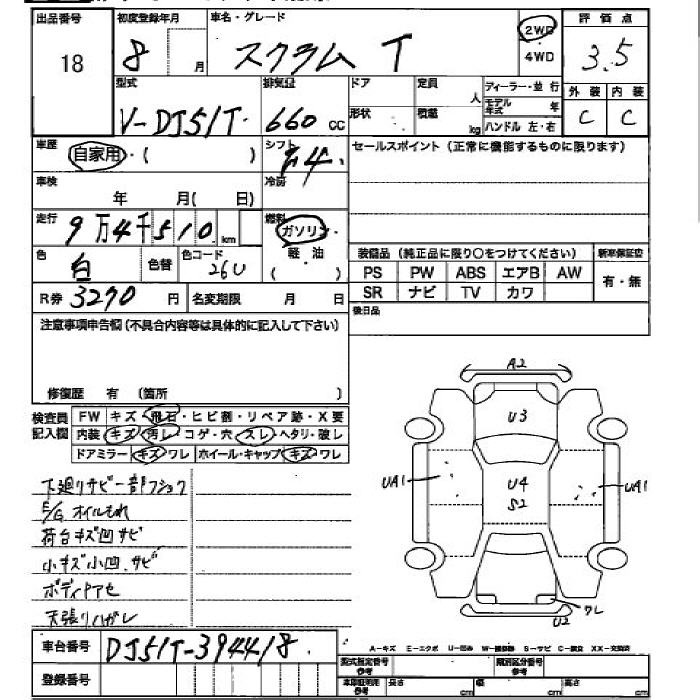 出品番号 初度登録年月 車名・グレード 2WD 4WD 評価点
18 8 月 スクラム T 3.5
型式 排気量 ドア 定員 人 ディーラー・並行 外装 内装
V-DJ51T 660 cc 形状 積載 kg モデル年式 年 ハンドル 左・右 C C
車歴 自家用・( ) シフト F4 セールスポイント (正常に機能するものに限ります)
車検 年 月( 日) 冷房
走行 9万4千510 km 燃料 ガソリン 軽・油 ( )
色 白 色替 色コード 26U
装備品 (純正品に限り○をつけてください) 新車保証書
PS PW ABS エアB AW 有・無
SR ナビ TV カワ
R券 3270 円 名変期限 月 日 後日品
注意事項申告欄 (不具合内容等は具体的に記入して下さい)
修復歴 有 (箇所 )
検査員記入欄 FW キズ・飛石・ヒビ割・リペア跡・X要
内装 キズ・汚レ・コゲ・穴・スレ・ヘタリ・破レ
ドアミラー キズ・ワレ ホイール・キャップ キズ・ワレ
下廻りサビ一部フショク
E/Gオイルもれ
荷台キズ凹サビ
小キズ小凹.サビ
ボディヤアセ
天張りハガレ
A2
U3
UA1 U4 UA1
S2
ワレ
U2
車台番号 DJ51T-394418
登録番号
A-キズ E-エクボ U-凹み S-サビ C-腐食 XX-交換済
型式指定番号 参考 類別区分番号 参考
車体証明用 参考 長さ cm 幅 cm 高さ cm